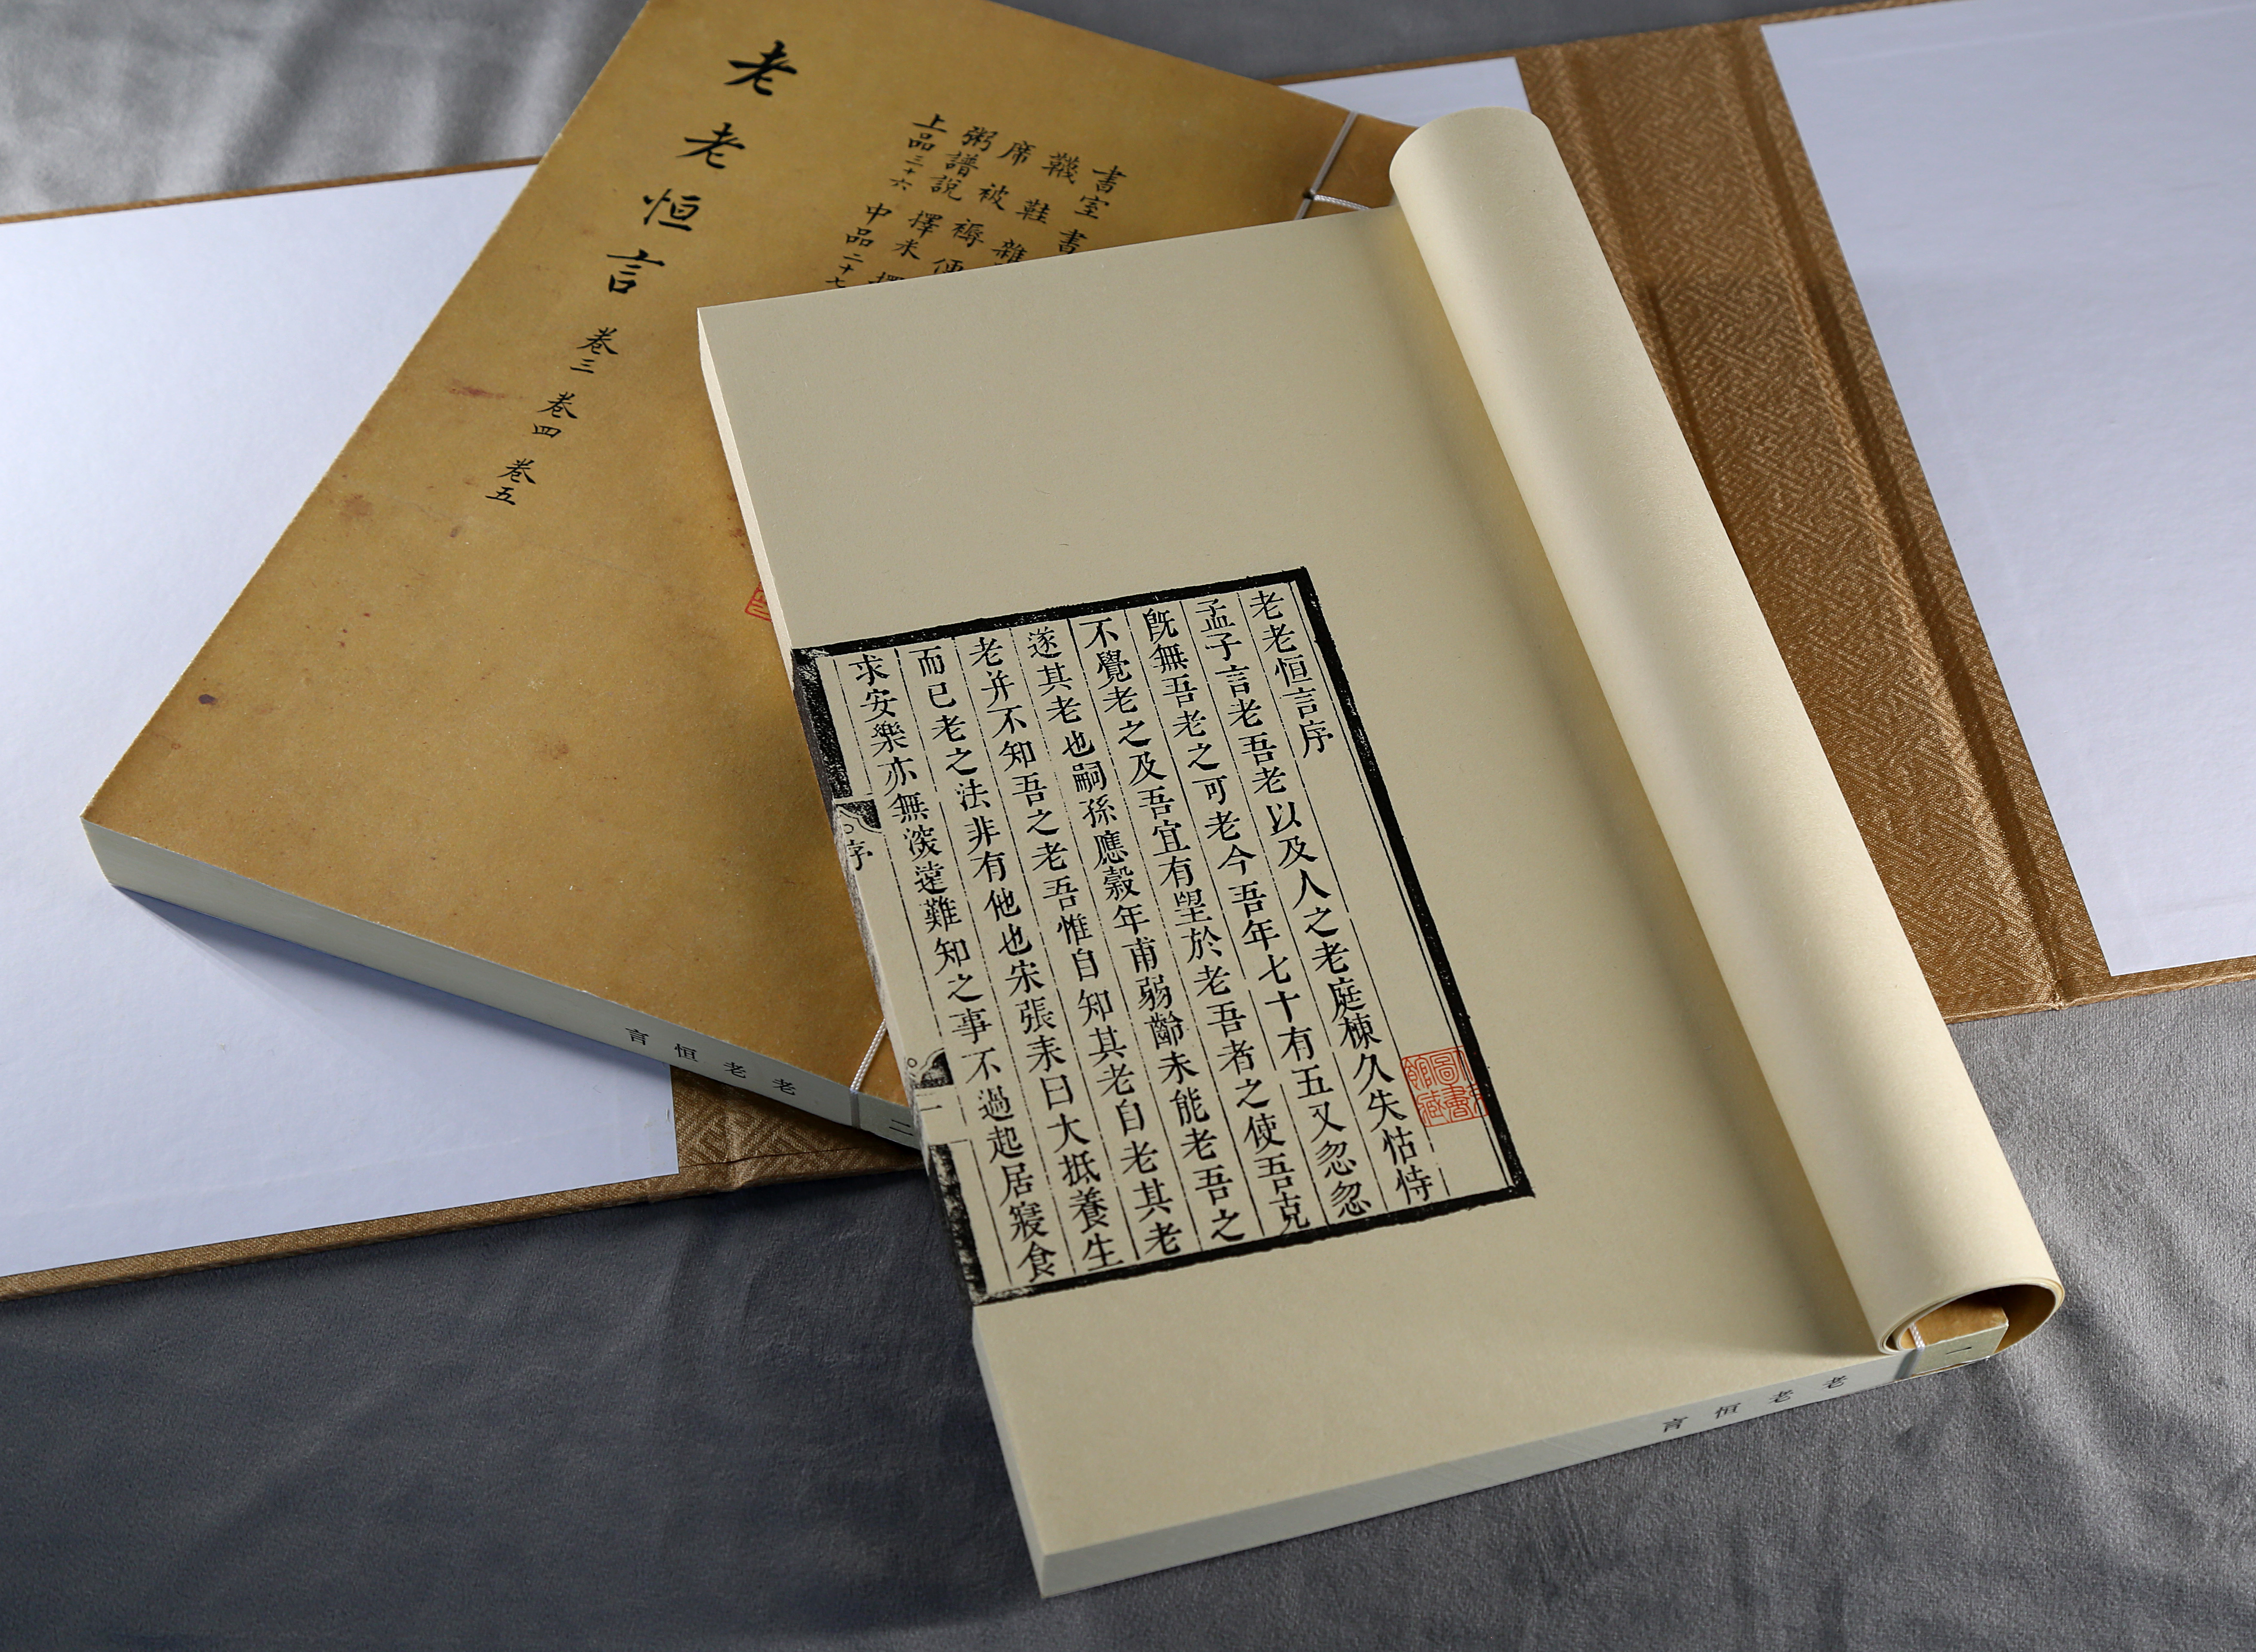 老老恒言 卷三 卷四 卷五
書室 書
韈 鞋 雜
席 被 褥 便
粥譜說 擇米 擇
上品三十六 中品二十七
老老恒言
二
老老恒言序
孟子言老吾老以及人之老庭棟久失怙恃
旣無吾老之可老今吾年七十有五又忽忽
不覺老之及吾宜有望於老吾者之使吾克
遂其老也嗣孫應穀年甫弱齡未能老吾之
老并不知吾之老吾惟自知其老自老其老
而已老之法非有他也宋張耒曰大抵養生
求安樂亦無深遠難知之事不過起居寢食
序
一
圖書館藏
老老恒言
一